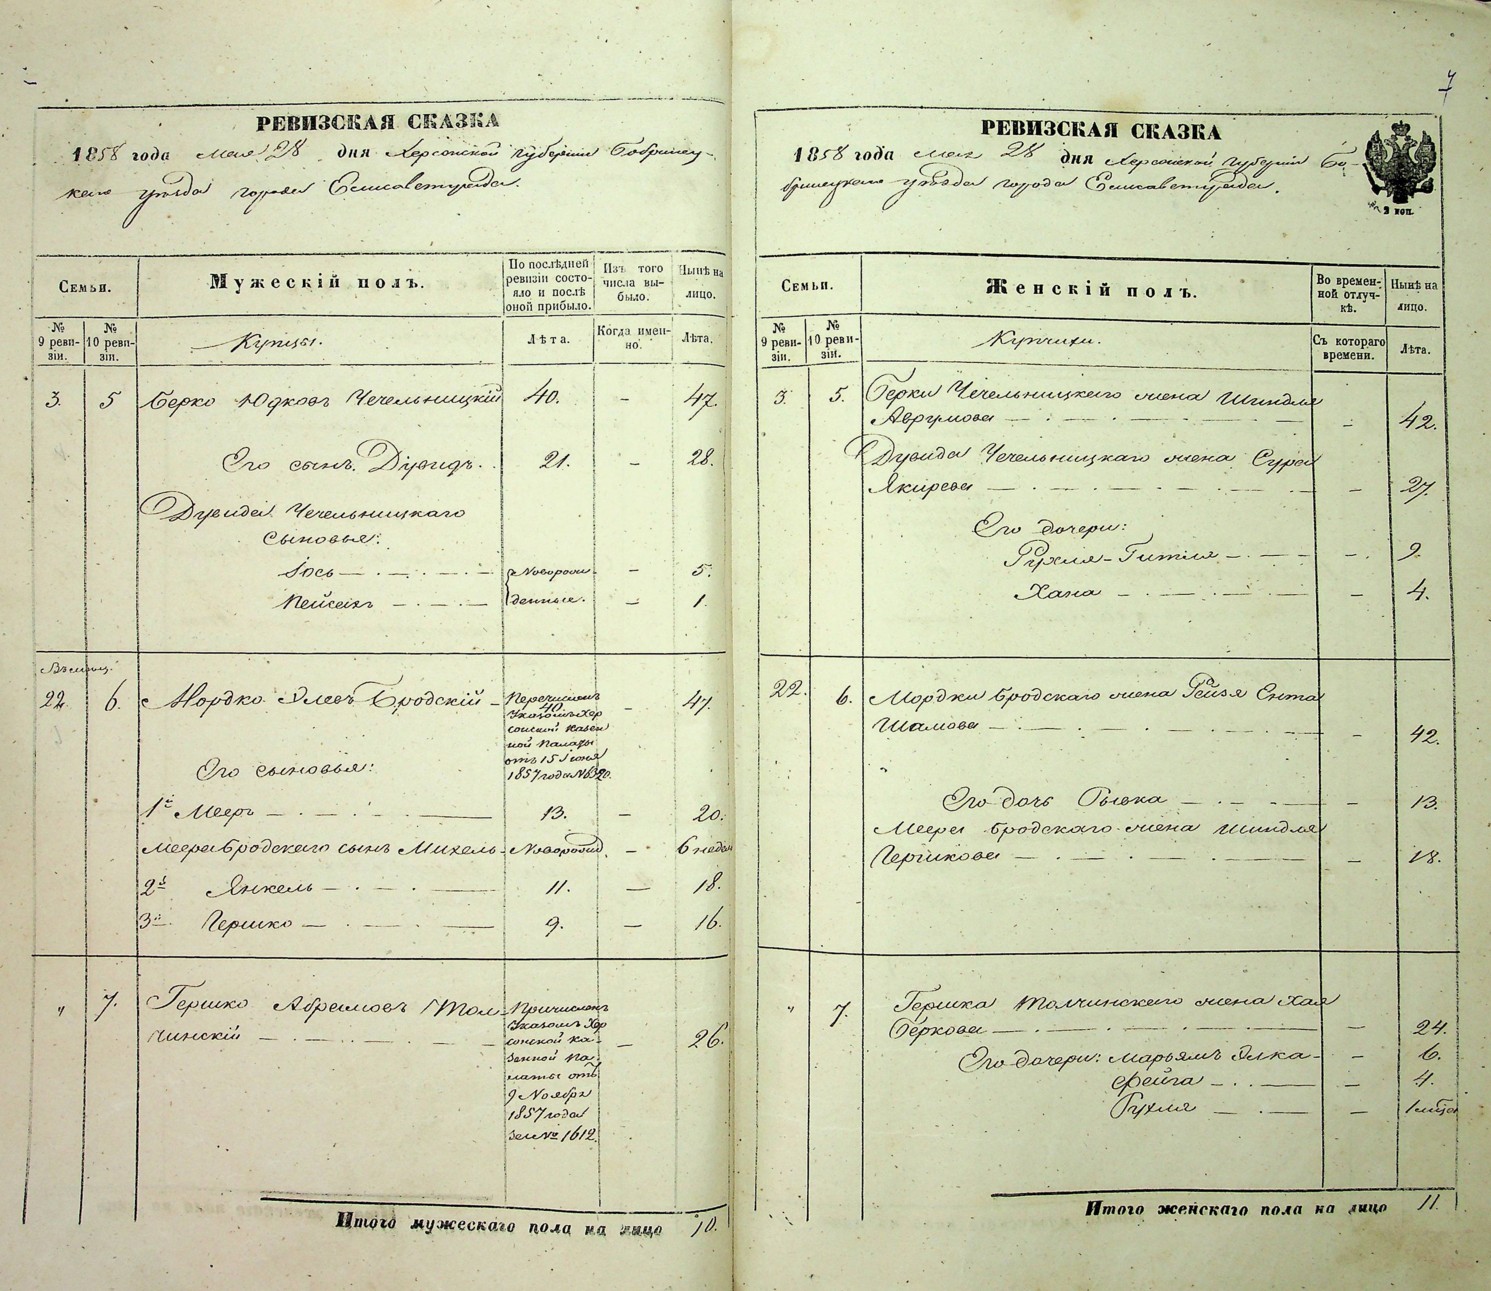 РЕВИЗСКАЯ СКАЗКА
1858 года мая 28 дня Херсонской губернии Бобринец-
каго уѣзда города Елисаветграда.
Семьи.
Мужескій полъ.
По послѣдней ревизіи состо-
яло и послѣ оной прибыло.
Изъ того числа вы-
было.
Нынѣ на лицо.
№ 9 реви-
зіи.
№ 10 реви-
зіи.
Купцы.
Лѣта.
Когда имен-
но.
Лѣта.
3. 5 Берко Юдковъ Чечельницкій 40. – 47.
Его сынъ Дувидъ. 21. – 28.
Дувида Чечельницкаго
сыновья:
Іось – 5.
Новорож-
Пейсахъ – 1.
денные.
Въ мѣщ.
22. 6. Мордко Элевъ Бродскій – 47.
Перечисленъ
40.
Указомъ Хер
сонской Казен
ной Палаты
отъ 15 Іюня
1857 года №
Его сыновья:
1й Мееръ – 13. – 20.
Меера Бродскаго сынъ Михель – Новорожд. – 6 недел
2й Янкель – 11. – 18.
3й Гершко – 9. – 16.
" 7. Гершко Абрамовъ Тол-
чинскій – 26.
Причисленъ
Указомъ Хер
сонской Ка-
зенной Па-
латы отъ
9 Ноября
1857 года
за № 1612.
Итого мужескаго пола на лицо 10.
7
РЕВИЗСКАЯ СКАЗКА
1858 года мая 28 дня Херсонской губерніи Бо-
бринецкаго уѣзда города Елисаветграда.
2 коп.
Семьи.
Женскій полъ.
Во времен-
ной отлуч-
кѣ.
Нынѣ на лицо.
№ 9 реви-
зіи.
№ 10 реви-
зіи.
Купчихи.
Съ котораго времени.
Лѣта.
3. 5. Берки Чечельницкаго жена Шиндля
Аврумова – 42.
Дувида Чечельницкаго жена Сура
Якирева – 27.
Его дочери:
Рухля-Гитля – 9.
Хана – 4.
22. 6. Мордки Бродскаго жена Рейзя Ента
Шамова – 42.
Его дочь Рывка – 13.
Меера Бродскаго жена Шиндля
Гершкова – 18.
" 7. Гершка Толчинскаго жена Хая
Беркова – 24.
Его дочери: Марьямъ Элка – 6.
Фейга – 4.
Рухля – 1 мѣца
Итого женскаго пола на лицо 11.